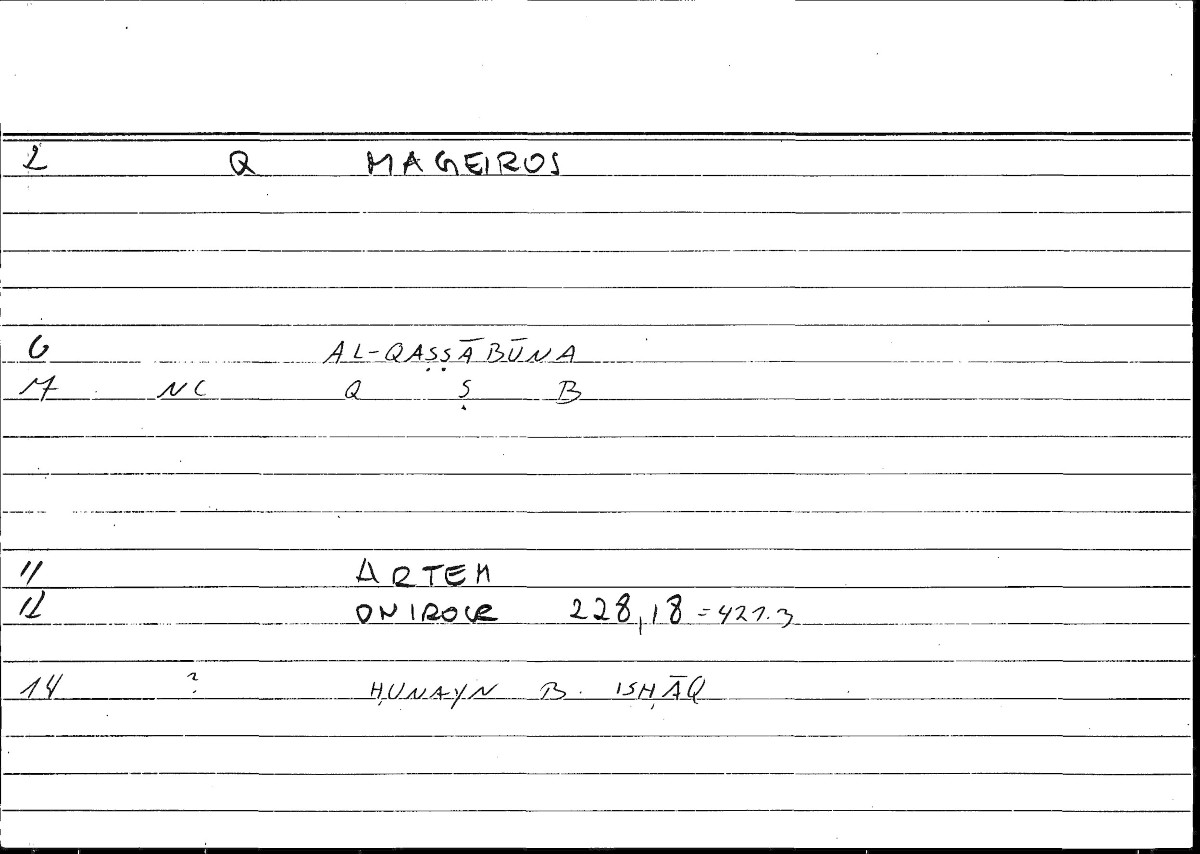 2 Q MAGEIROS
6 AL-QAṢṢĀBŪNA
17 NC Q Ṣ B
11 ARTEM
12 ONIROCR 228,18 = 421.3
14 ? ḤUNAYN B. ISḤĀQ